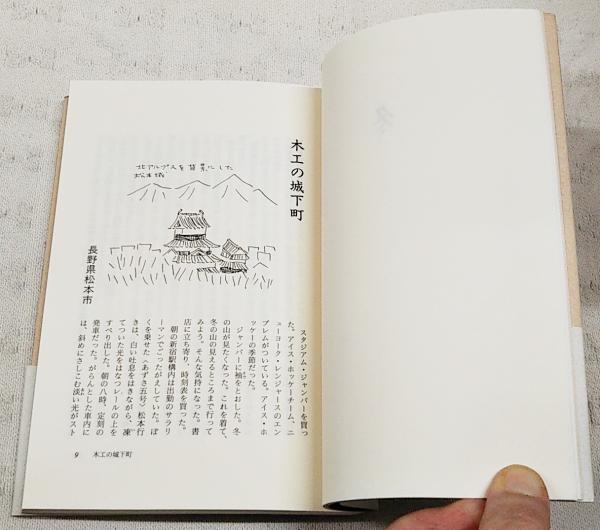 木工の城下町
北アルプスを背景にした
松本城
長野県松本市
スタジアム・ジャンパーを買っ
た。アイス・ホッケーチーム、ニ
ューヨーク・レンジャースのエン
ブレムがついている。アイス・ホ
ッケーの季節だった。
ジャンパーに袖をとおした。冬
の山が見たくなった。これを着て、
冬の山の見えるところまで行って
みよう。そんな気持になった。書
店に立ち寄り、時刻表を買った。
朝の新宿駅構内は出勤のサラリ
ーマンでごったがえしていた。ぼ
くを乗せた〈あずさ五号〉松本行
きは、白い吐息をはきながら、凍
てついた光をはなつレールの上を
すべり出した。朝の八時、定刻の
発車だった。がらんとした車内に
は、斜めにさしこむ淡い光がスト
9 木工の城下町
冬